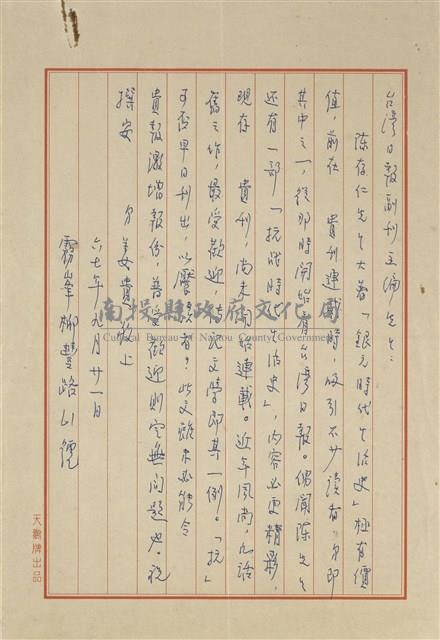 台灣日報副刊主編先生:
陳存仁先生大著「銀元時代生活史」極有價
值,前在 貴刊連載時,吸引不少讀者,弟即
其中之一,從那時開始看台灣日報。偶聞陳先生
還有一部「抗戰時代生活史」,內容必更精彩,
現存 貴刊,尚未開始連載。近年風尚,凡話
舊之作,最受歡迎,民文學即其一例。「抗」
可否早日刊出,以饜讀者?此文雖未必能令
貴報激增報份,普受歡迎則定無問題也。祝
撰安 弟姜貴敬上
六七年九月廿一日
霧峯柳豐路61號
南投縣政府文化局
Cultural Bureau of Nantou County Government
天鵝牌出品